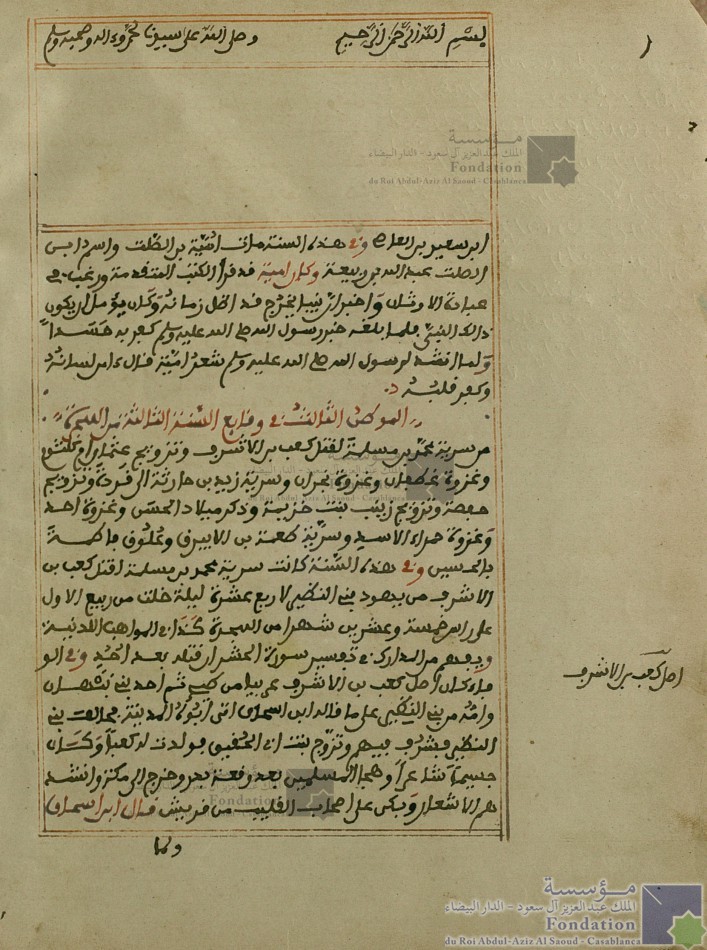 بسم الله الرحمن الرحيم وصلى الله على سيدنا محمد وءاله وصحبه وسلم
ابن سعيد بن العاص وفي هذه السنة مات أمية بن الصلت واسم ابي
الصلت عبد الله بن ربيعة وكان امية قد قرأ الكتب المتقدمة ورغب عن
عبادة الاوثان وأخبر ان نبيا يخرج قد اظل زمانه وكان يؤمل ان يكون
ذالك النبي فلما بلغه خبر رسول الله صلى الله عليه وسلم كفر به حسدا
ولما انشد لرسول الله صلى الله عليه وسلم شعر امية قال ءامن لسانه
وكفر قلبه
الموطن الثالث في وقايع السنة الثالثة من الهجرة
من سرية محمد بن مسلمة لقتل كعب بن الاشرف وتزويج عثمان ام كلثوم
وغزوة غطفان وغزوة نجران وسرية زيد بن حارثة الى قردة وتزويج
حفصة وتزويج زينب بنت خزيمة وذكر ميلاد الحسن وغزوة احد
وغزوة حمراء الاسد وسرية طعمة بن الابيرق وعلوق فاطمة
بالحسين وفي هذه السنة كانت سرية محمد بن مسلمة لقتل كعب بن
الاشرف من يهود بني النظير لاربع عشرة ليلة خلت من ربيع الاول
على راس خمسة وعشرين شهرا من الهجرة كذا في المواهب اللدنية
ويفهم من المدارك في تفسير سورة الحشر ان قتله بعد احد وفي الو
فاء كان اصل كعب بن الاشرف عربيا من طيء ثم احد بني نبهان
وامه من بني النظير على ما قاله ابن اسحاق اتى ابوه المدينة فحالف بني
النظير فشرف فيهم وتزوج بنت ابي الحقيق فولدت له كعبا وكان
جسيما شاعرا وهجا المسلمين بعد وقعة بدر وخرج الى مكة وانشد
هم الاشعار وبكى على اصحاب القليب من قريش قال ابن اسحاق
ولما
اصل كعب بن الاشرف
مؤسسة
الملك عبد العزيز آل سعود - الدار البيضاء
Fondation
du Roi Abdul-Aziz Al Saoud - Casablanca